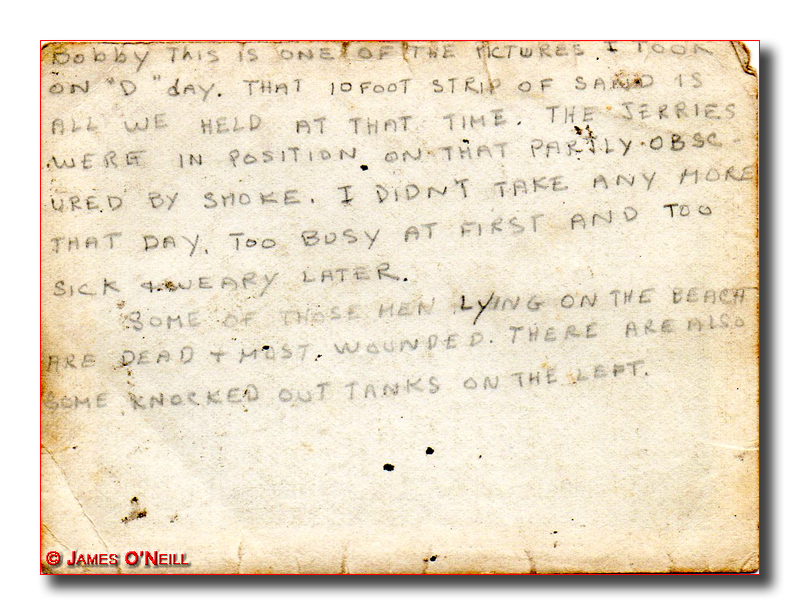 Bobby THIS IS ONE OF THE PICTURES I TOOK
ON "D" day. THAT 10 FOOT STRIP OF SAND IS
ALL WE HELD AT THAT TIME. THE JERRIES
WERE IN POSITION ON THAT PARTLY OBSC-
URED BY SMOKE. I DIDN'T TAKE ANY MORE
THAT DAY. TOO BUSY AT FIRST AND TOO
SICK + WEARY LATER.
SOME OF THOSE MEN LYING ON THE BEACH
ARE DEAD + MOST WOUNDED. THERE ARE ALSO
SOME KNOCKED OUT TANKS ON THE LEFT.
© JAMES O'NEILL